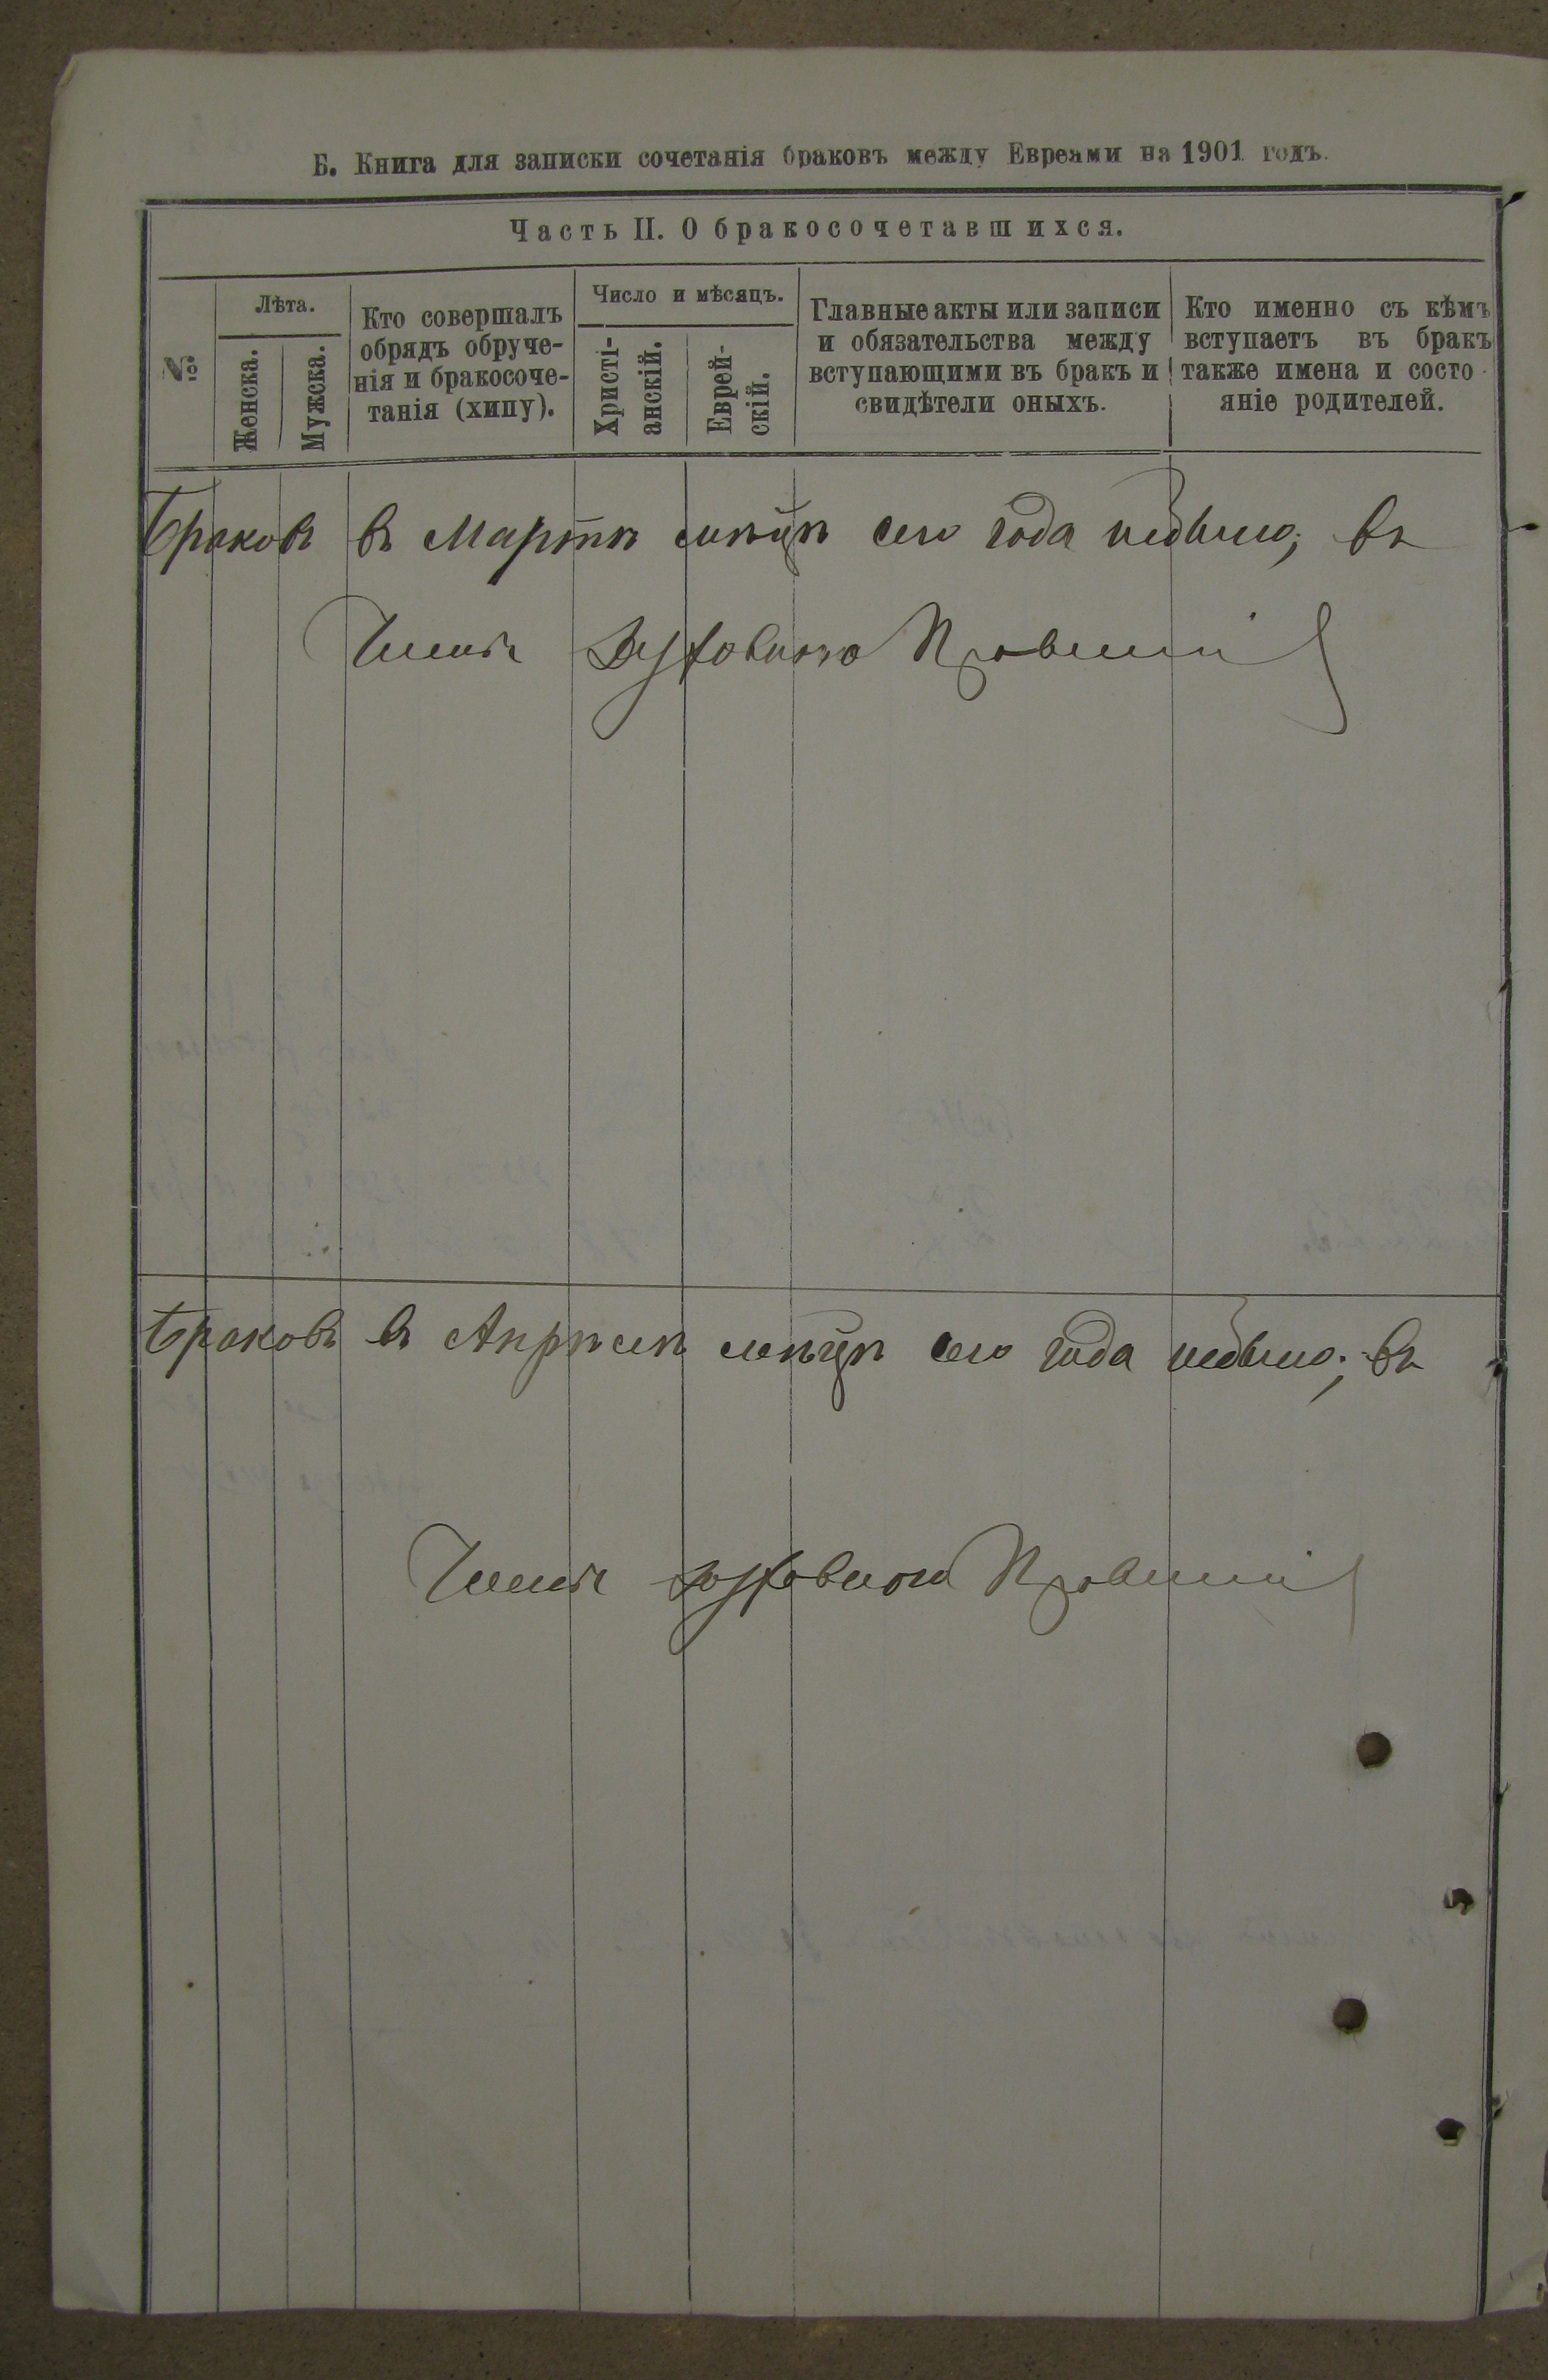 Б. Книга для записки сочетанія браковъ между Евреями на 1901 годъ.
Часть II. О бракосочетавшихся.
№
Лѣта.
Женска.
Мужска.
Кто совершалъ
обрядъ обруче-
нія и бракосоче-
танія (хипу).
Число и мѣсяцъ.
Христі-
анскій.
Еврей-
скій.
Главные акты или записи
и обязательства между
вступающими въ бракъ и
свидѣтели оныхъ.
Кто именно съ кѣмъ
вступаетъ въ бракъ
также имена и состо-
яніе родителей.
Браковъ въ Мартѣ мѣцѣ сего года небыло; въ
Членъ Духовного Правленія
Браковъ въ Апрѣлѣ мѣцѣ сего года небыло; въ
Членъ Духовного Правленія